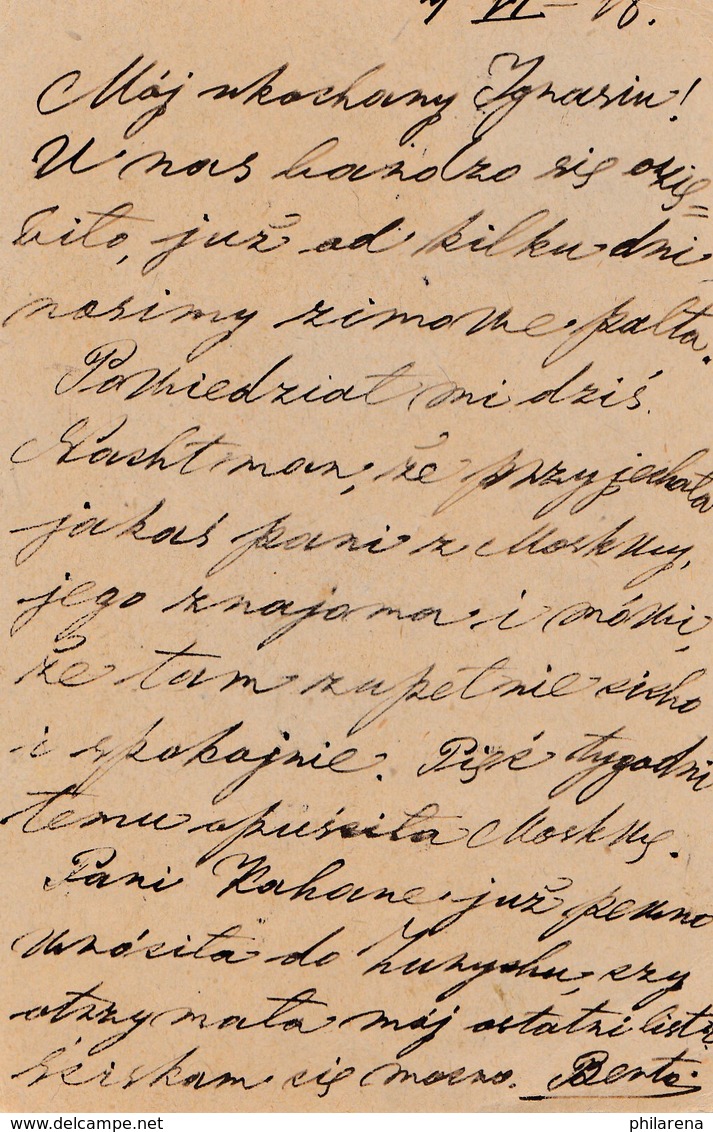 VI – 18.
Mój ukochany Ignasiu!
U nas bardzo się ozię=
biło, już od kilku dni
nosimy zimowe palta.
Powiedział mi dziś
Nachtman, że przyjechała
jakaś pani z Moskwy,
jego znajoma i mówi,
że tam zupełnie cicho
i spokojnie. Pięć tygodni
temu opuściła Moskwę.
Pani Kahane już pewno
wróciła do Zurychu, czy
otrzymała mój ostatni list?
Ściskam cię mocno. Berta
www.delcampe.net
philarena